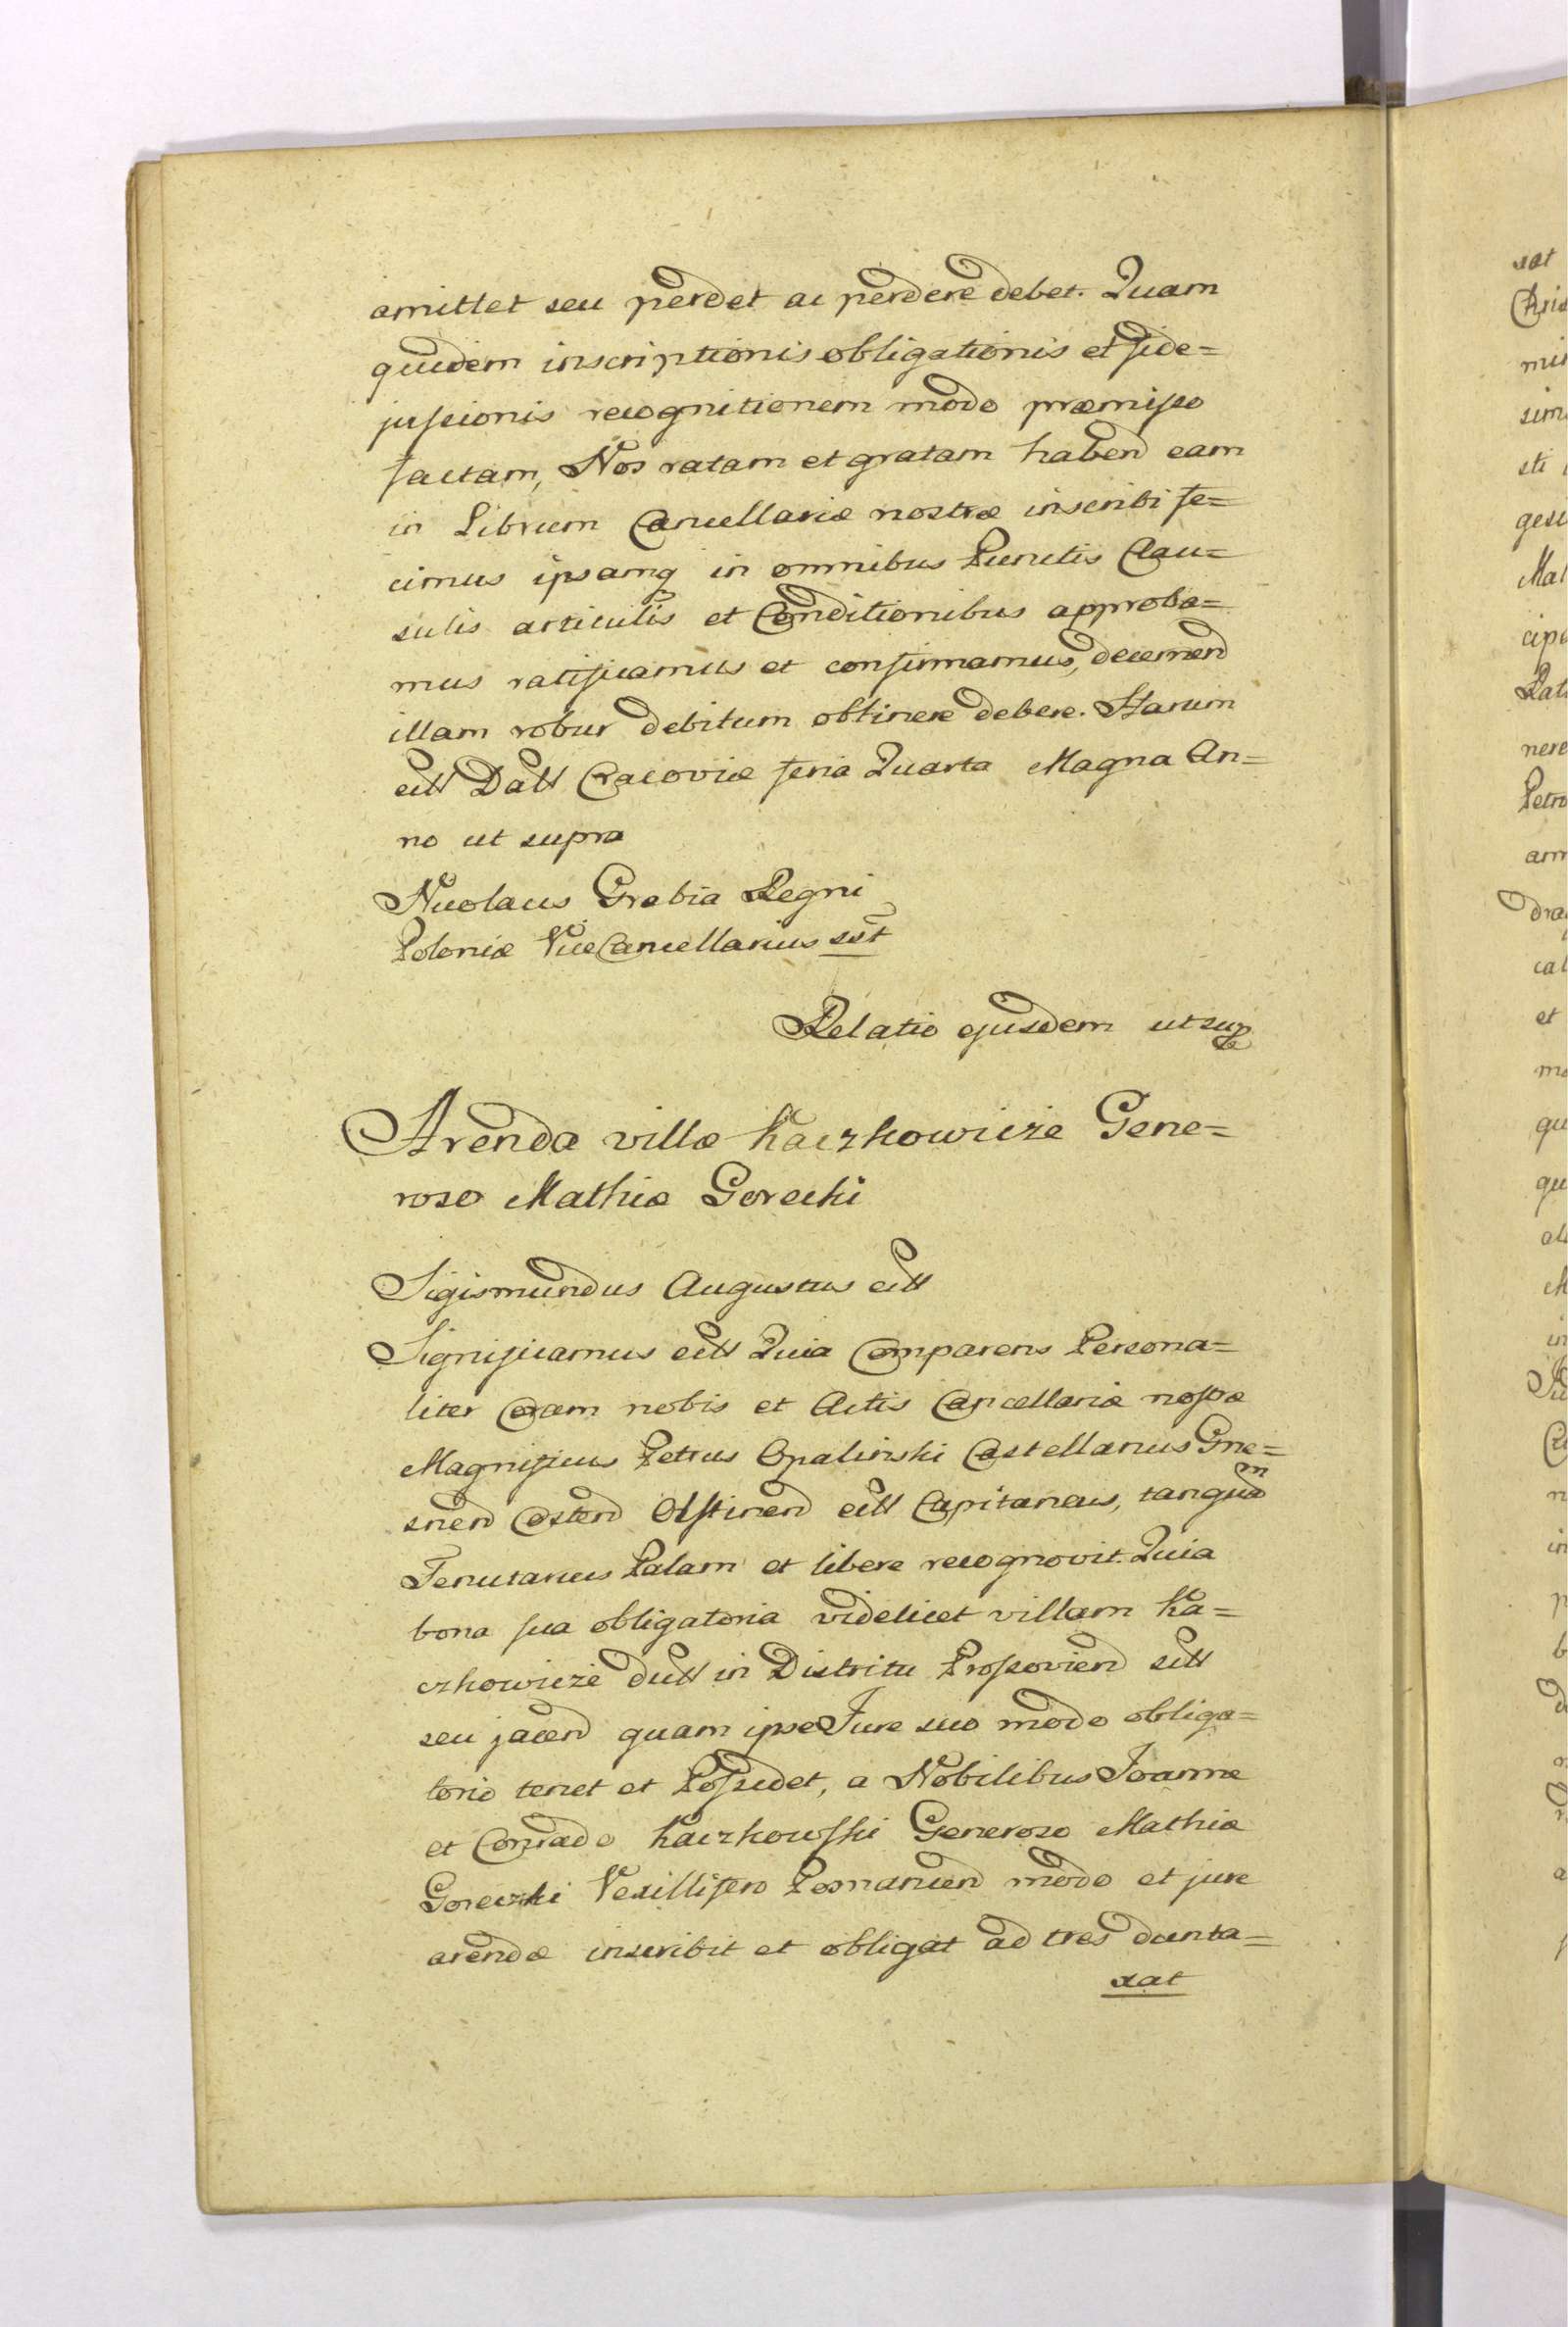 amittet seu perdet ac perdere debet. Quam
quidem inscriptionis obligationis et fide=
jussionis recognitionem modo præmisso
factam, Nos ratam et gratam habend eam
in Librum Cancellariæ nostræ inscribi fe=
cimus ipsamq in omnibus Punctis Clau=
sulis articulis et Conditionibus approba=
mus ratificamus et confirmamus, decernend
illam robur debitum obtinere debere. Harum
ett Datt Cracoviæ feria Quarta Magna An=
no ut supra
Nicolaus Grabia Regni
Poloniæ ViceCancellarius sst
Relatio ejusdem ut sup
Arenda villæ Kaczkowicze Gene=
roso Mathiæ Gorecki
Sigismundus Augustus ett
Significamus ett Quia Comparens Persona=
liter Coram nobis et Actis Cancellariæ nostræ
Magnificus Petrus Opalinski Castellanus Gne=
snen Costen Olstinen ett Capitaneus, tanquam
Tenutarius Palam et libere recognovit. Quia
bona sua obligatoria videlicet villam Ka=
czkowicze dutt in Districtu Prossovien sitt
seu jacen quam ipse Jure suo modo obliga=
torio tenet et Possidet, a Nobilibus Joanne
et Conrado Kaczkowski Generoso Mathiæ
Goreczki Vexillifero Posnanien modo et jure
arendæ inscribit et obligat ad tres dunta=
xat
xat
mi
sim
sti
gesi
Mat
cipa
nere
Petro
cal
et
mo
qu
qu